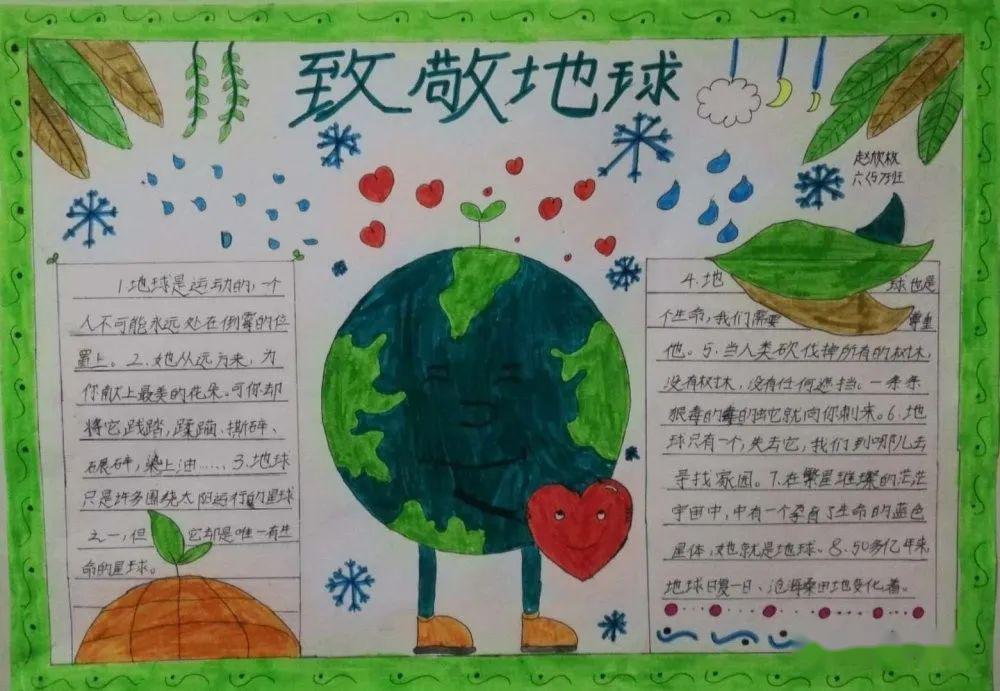 致敬地球
赵欣
六(5)班
1.地球是运动的,一个
人不可能永远处在倒霉的位
置上。2.她从远方来,为
你献上最美的花朵。可你却
将它践踏,蹂躏、撕碎、
碾碎,染上油……3.地球
只是许多围绕太阳运行的星球
之一,但它却是唯一有生
命的星球。
4.地球也是
个生命,我们需要尊重
他。5.当人类砍伐掉所有的树林,
没有树林,没有任何遮挡。一条条
狠毒的毒的蛇它就向你刺来。6.地
球只有一个,失去它,我们到哪儿去
寻找家园。7.在繁星璀璨的茫茫
宇宙中,中有一个孕育了生命的蓝色
星体,她就是地球。8.50多亿年来,
地球日复一日、沧海桑田地变化着。